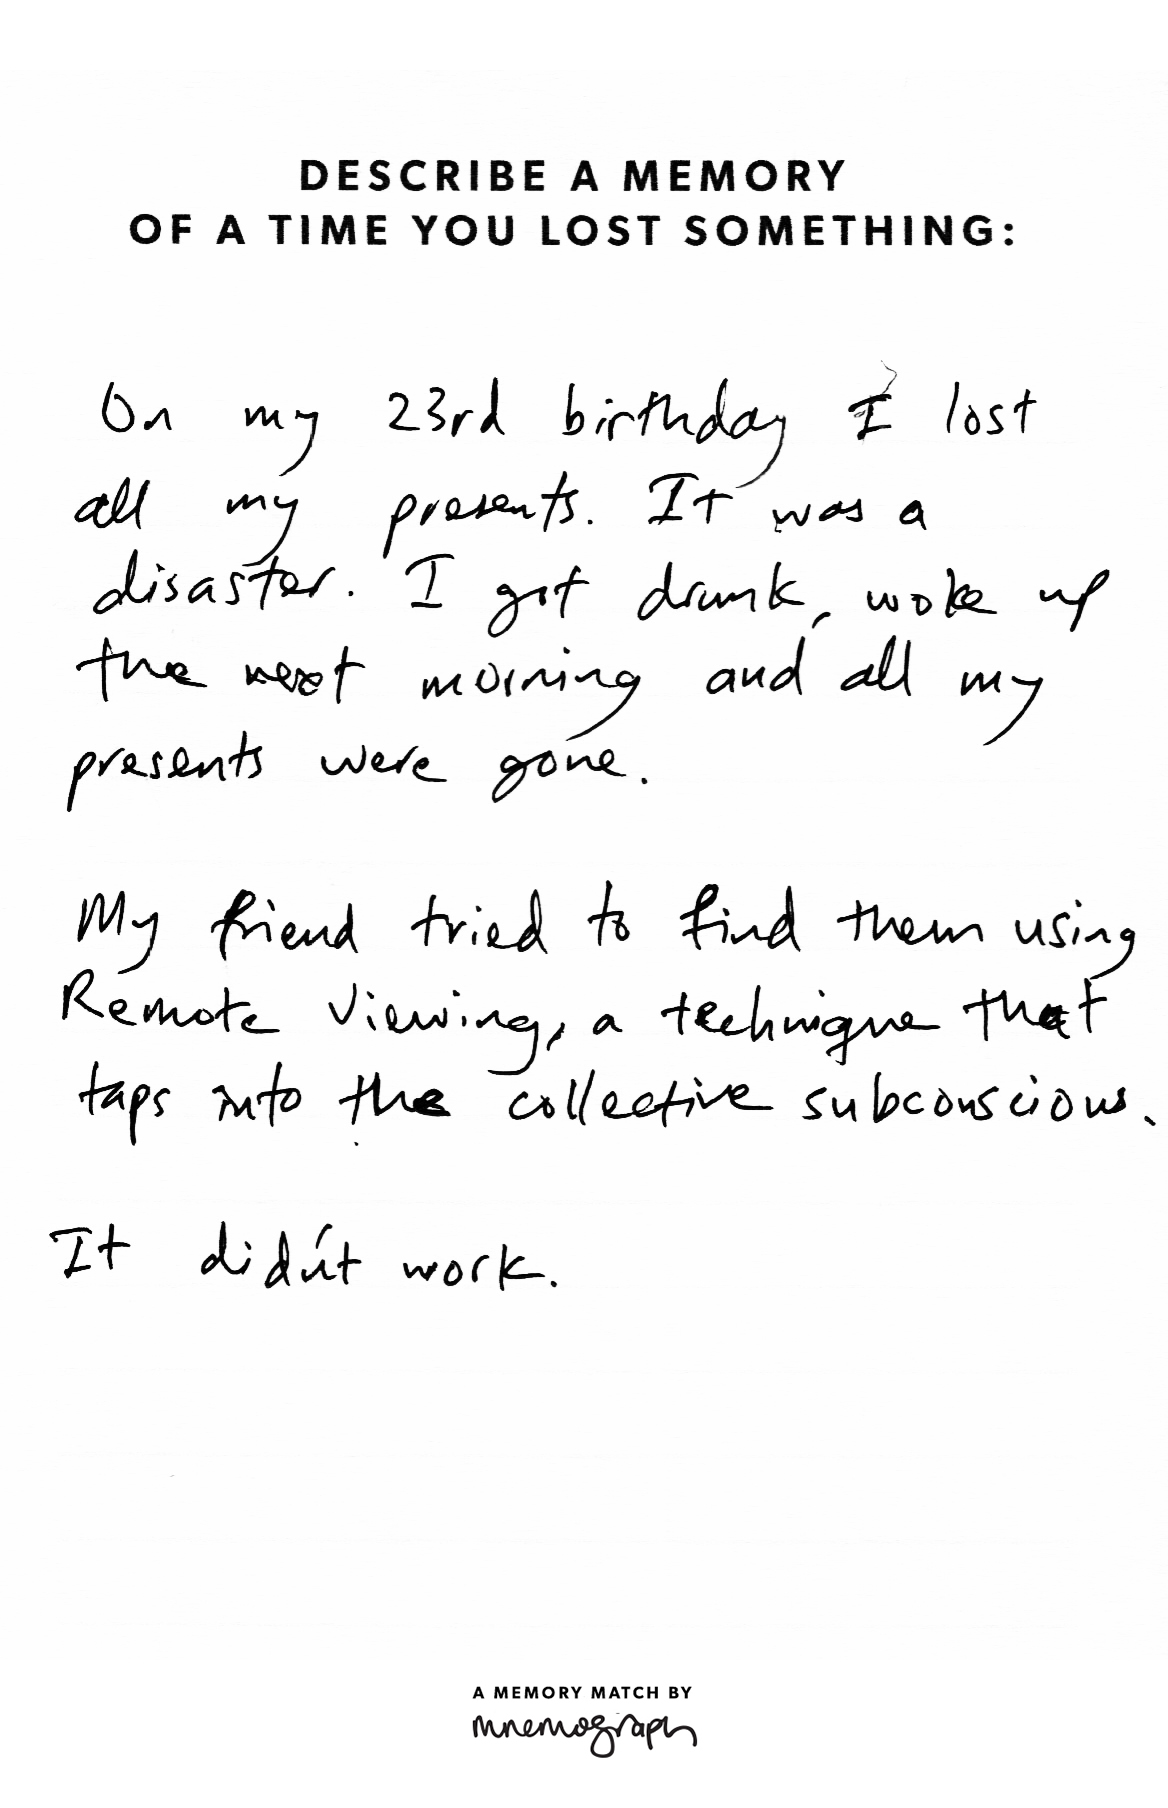 DESCRIBE A MEMORY
OF A TIME YOU LOST SOMETHING:
On my 23rd birthday I lost
all my presents. It was a
disaster. I got drunk, woke up
the next morning and all my
presents were gone.
My friend tried to find them using
Remote Viewing, a technique that
taps into the collective subconscious.
It didn't work.
A MEMORY MATCH BY
mnemograph